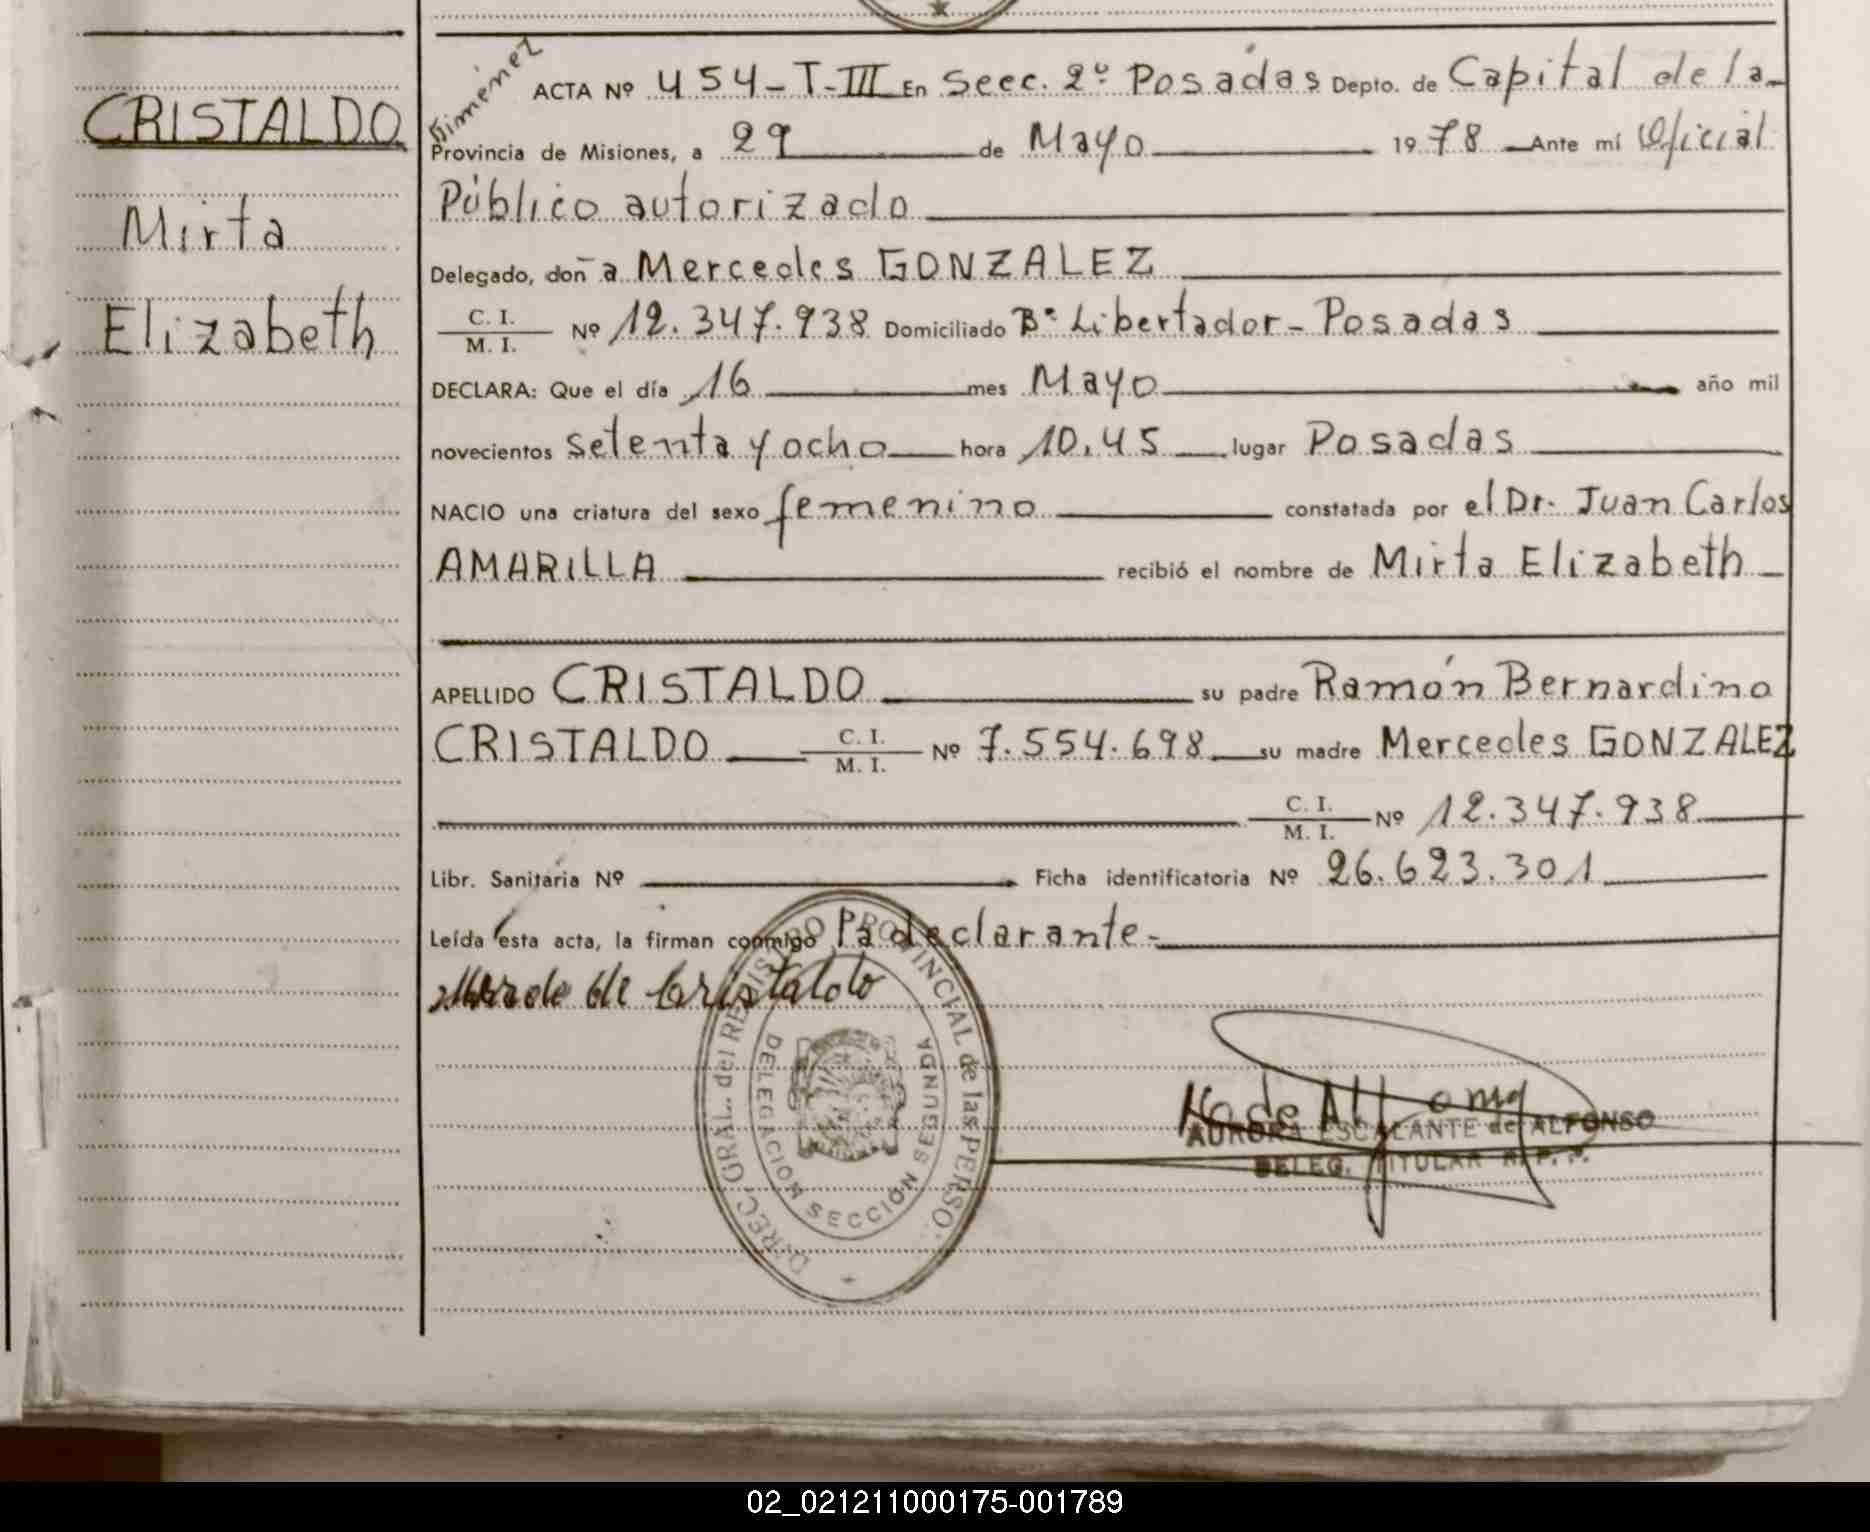 CRISTALDO
Mirta
Elizabeth
Jiménez
ACTA Nº 454-T-III En Secc. 2º Posadas Depto. de Capital de la
Provincia de Misiones, a 29 de Mayo 1978 Ante mí Oficial
Público autorizado
Delegado, doña Mercedes GONZALEZ
C. I.
M. I. Nº 12.347.938 Domiciliado Bº Libertador - Posadas
DECLARA: Que el día 16 mes Mayo año mil
novecientos setenta y ocho hora 10.45 lugar Posadas
NACIO una criatura del sexo femenino constatada por el Dr. Juan Carlos
AMARILLA recibió el nombre de Mirta Elizabeth
APELLIDO CRISTALDO su padre Ramón Bernardino
CRISTALDO C. I. M. I. Nº 7.554.698 su madre Mercedes GONZALEZ
C. I.
M. I. Nº 12.347.938
Libr. Sanitaria Nº Ficha identificatoria Nº 26.623.301
Leída esta acta, la firman conmigo la declarante-
de Cristaldo
DIREC. GRAL. del REGISTRO PROVINCIAL de las PERSO.
DELEGACION SECCIÓN SEGUNDA
AURORA ESCALANTE de ALFONSO
DELEG. TITULAR R. P. P.
02_021211000175-001789